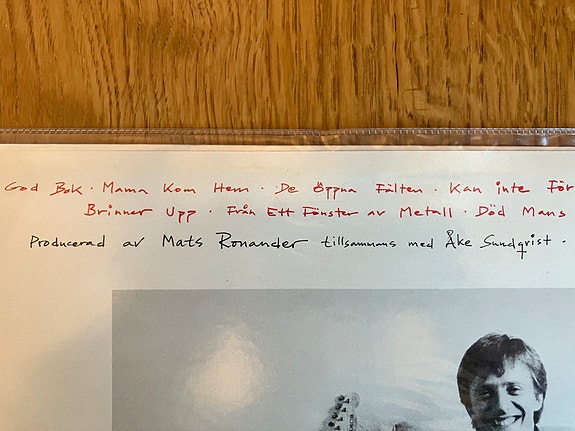 God Bok · Mama Kom Hem · De Öppna Fälten · Kan inte För
Brinner Upp · Från Ett Fönster av Metall · Död Mans
Producerad av Mats Ronander tillsammans med Åke Sundqvist ·